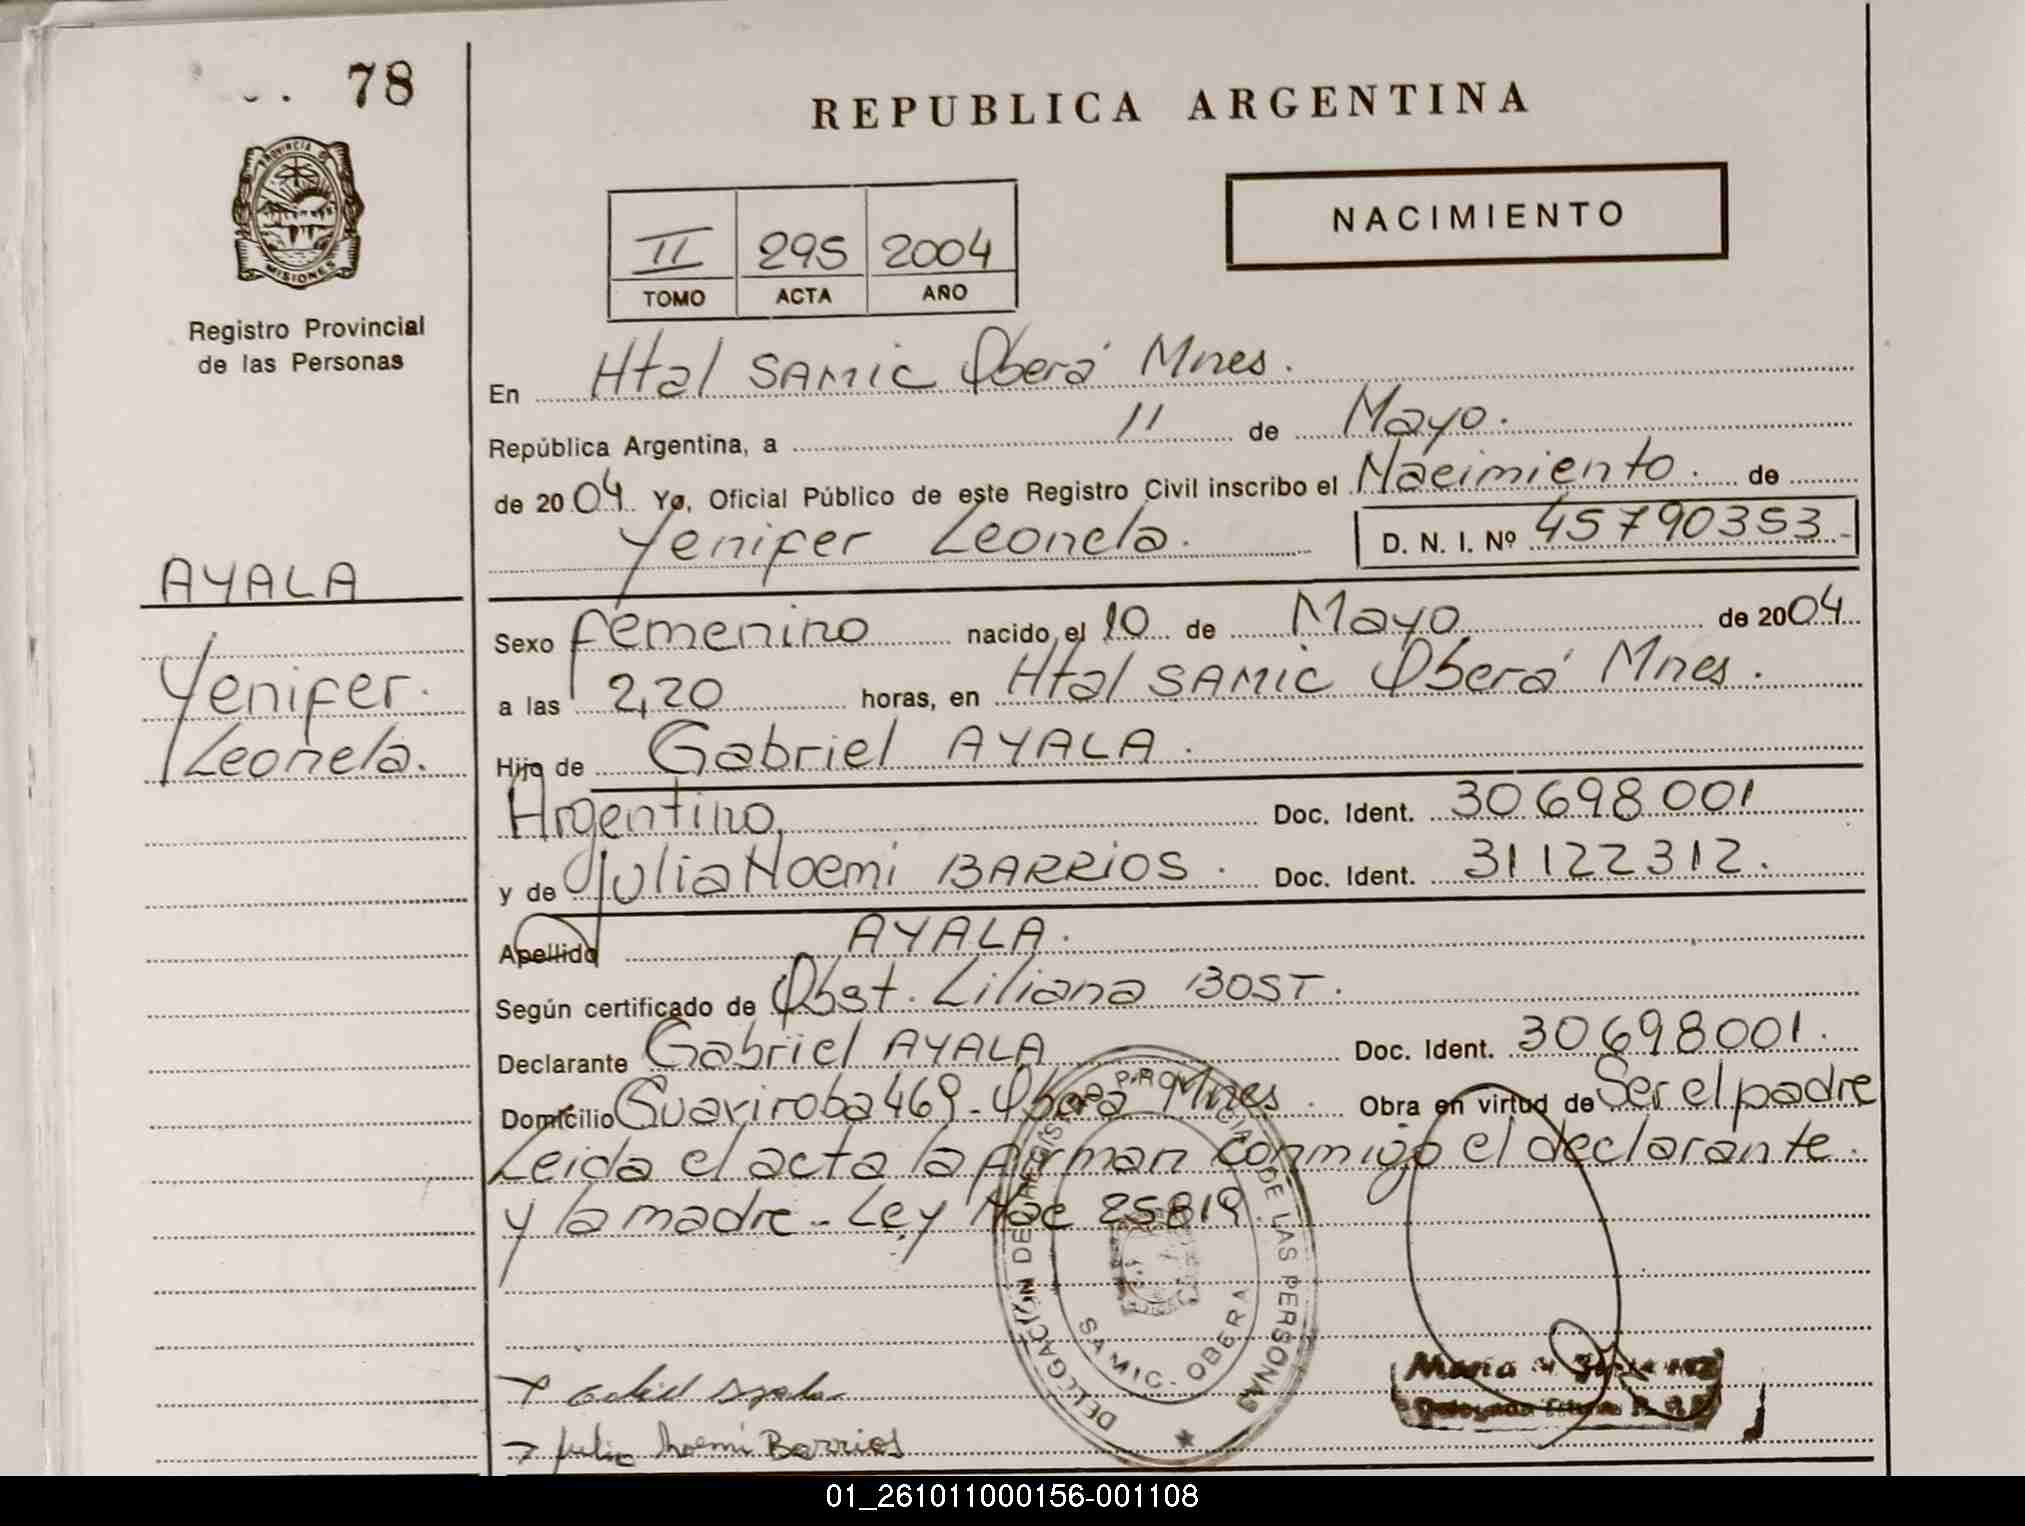 78
REPUBLICA ARGENTINA
PROVINCIA DE
MISIONES
Registro Provincial
de las Personas
NACIMIENTO
II 295 2004
TOMO ACTA AÑO
En Htal SAMIC Oberá Mnes.
República Argentina, a 11 de Mayo.
de 2004. Yo, Oficial Público de este Registro Civil inscribo el Nacimiento. de
Yenifer Leonela. D. N. I. Nº 45790353-
AYALA
Yenifer.
Leonela.
Sexo femenino nacido el 10 de Mayo de 2004
a las 2,20 horas, en Htal SAMIC Oberá Mnes.
Hijo de Gabriel AYALA.
Argentino, Doc. Ident. 30698001
y de Julia Noemi BARRIOS. Doc. Ident. 31122312.
Apellido AYALA.
Según certificado de Obst. Liliana BOST.
Declarante Gabriel AYALA Doc. Ident. 30698001.
Domicilio Guaviroba 469- Oberá Mnes. Obra en virtud de Ser el padre
Leida el acta la firman conmigo el declarante.
y la madre.- Ley Nac 25819.
DELEGACION DE REGISTRO PROVINCIAL DE LAS PERSONAS
SAMIC - OBERA
Gabriel Ayala
Maria
Julia Noemi Barrios
01_261011000156-001108